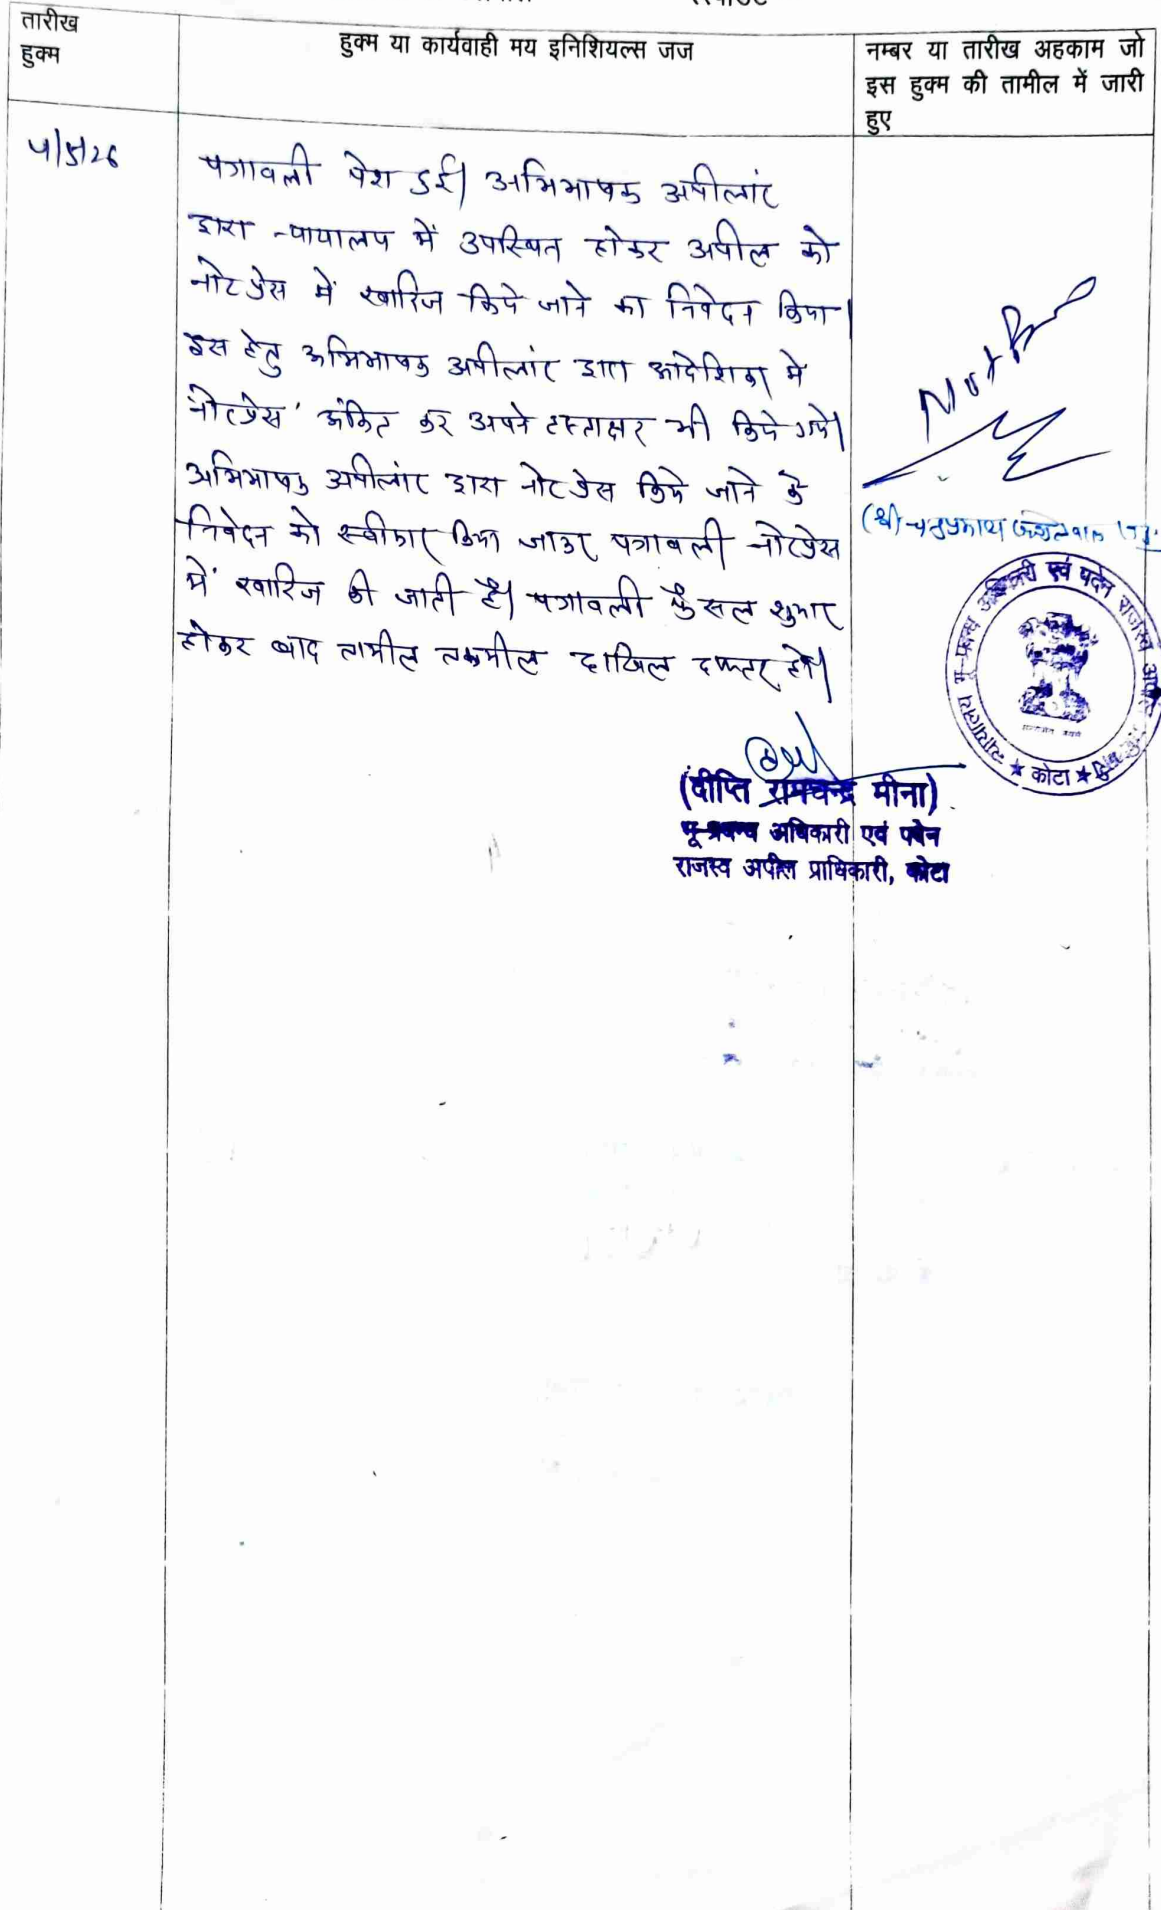 तारीख
हुक्म
हुक्म या कार्यवाही मय इनिशियल्स जज
नम्बर या तारीख अहकाम जो
इस हुक्म की तामील में जारी
हुए
4/5/26
पत्रावली पेश हुई। अभिभाषक अपीलांट
द्वारा न्यायालय में उपस्थित होकर अपील को
नोटप्रेस में खारिज किये जाने का निवेदन किया।
इस हेतु अभिभाषक अपीलांट द्वारा आदेशिका में
'नोटप्रेस' अंकित कर अपने हस्ताक्षर भी किये गये।
अभिभाषक अपीलांट द्वारा नोटप्रेस किये जाने के
निवेदन को स्वीकार किया जाकर पत्रावली नोटप्रेस
में खारिज की जाती है। पत्रावली फैसल शुमार
होकर बाद तामील तकमील दाखिल दफ्तर हो।
Not Press
(श्री
न्यायालय भू-प्रबन्ध अधिकारी एवं पदेन राजस्व अपील
★ कोटा ★
(दीप्ति रामचन्द्र मीना)
भू-प्रबन्ध अधिकारी एवं पदेन
राजस्व अपील प्राधिकारी, कोटा